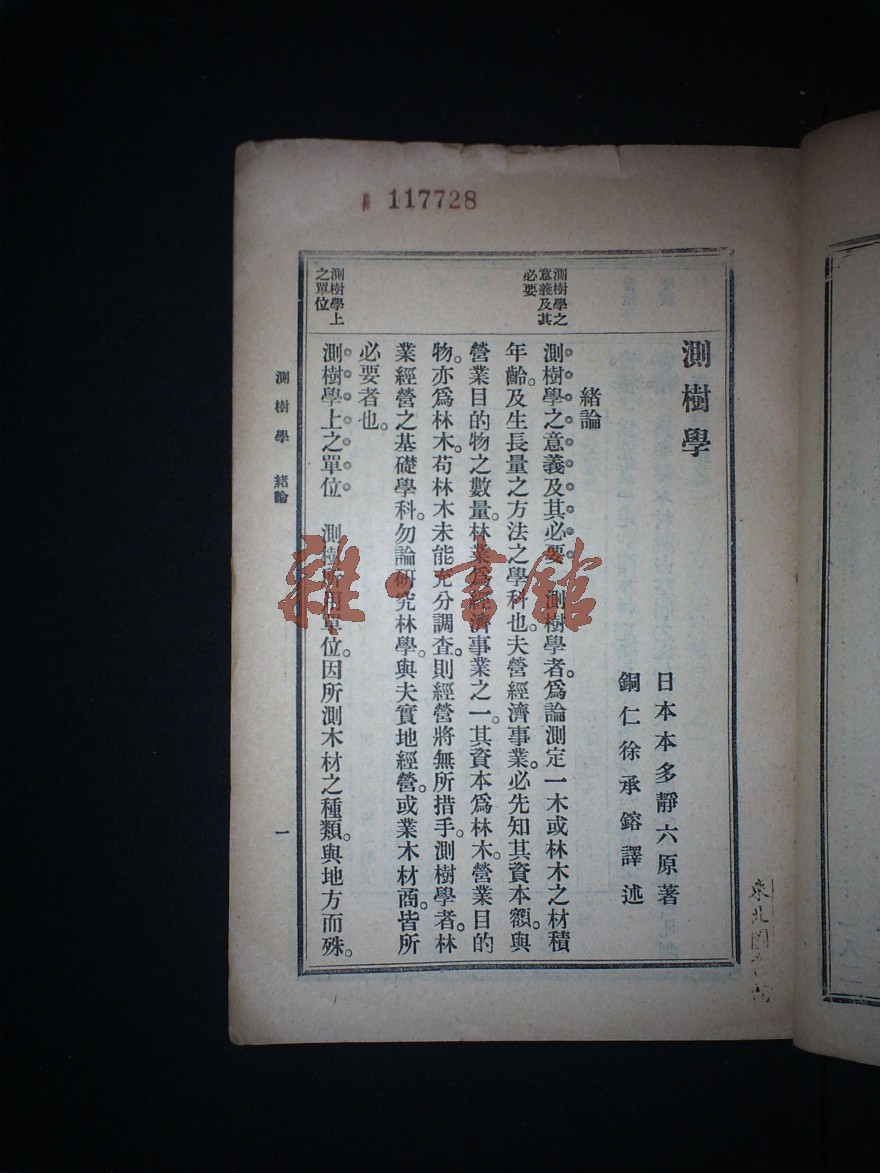 117728
測樹學
日本本多靜六原著
銅仁徐承鎔譯述
緒論
測樹學之
意義及其
必要
測樹學之意義及其必要 測樹學者。爲論測定一木或林木之材積
年齡。及生長量之方法之學科也。夫營經濟事業。必先知其資本額。與
營業目的物之數量。林業爲經濟事業之一。其資本爲林木。營業目的
物。亦爲林木。苟林木未能充分調査。則經營將無所措手。測樹學者。林
業經營之基礎學科。勿論硏究林學。與夫實地經營。或業木材商。皆所
必要者也。
測樹學上
之單位
測樹學上之單位 測樹所用單位。因所測木材之種類。與地方而殊。
測樹學 緒論
一
雜·書館
東北圖書館